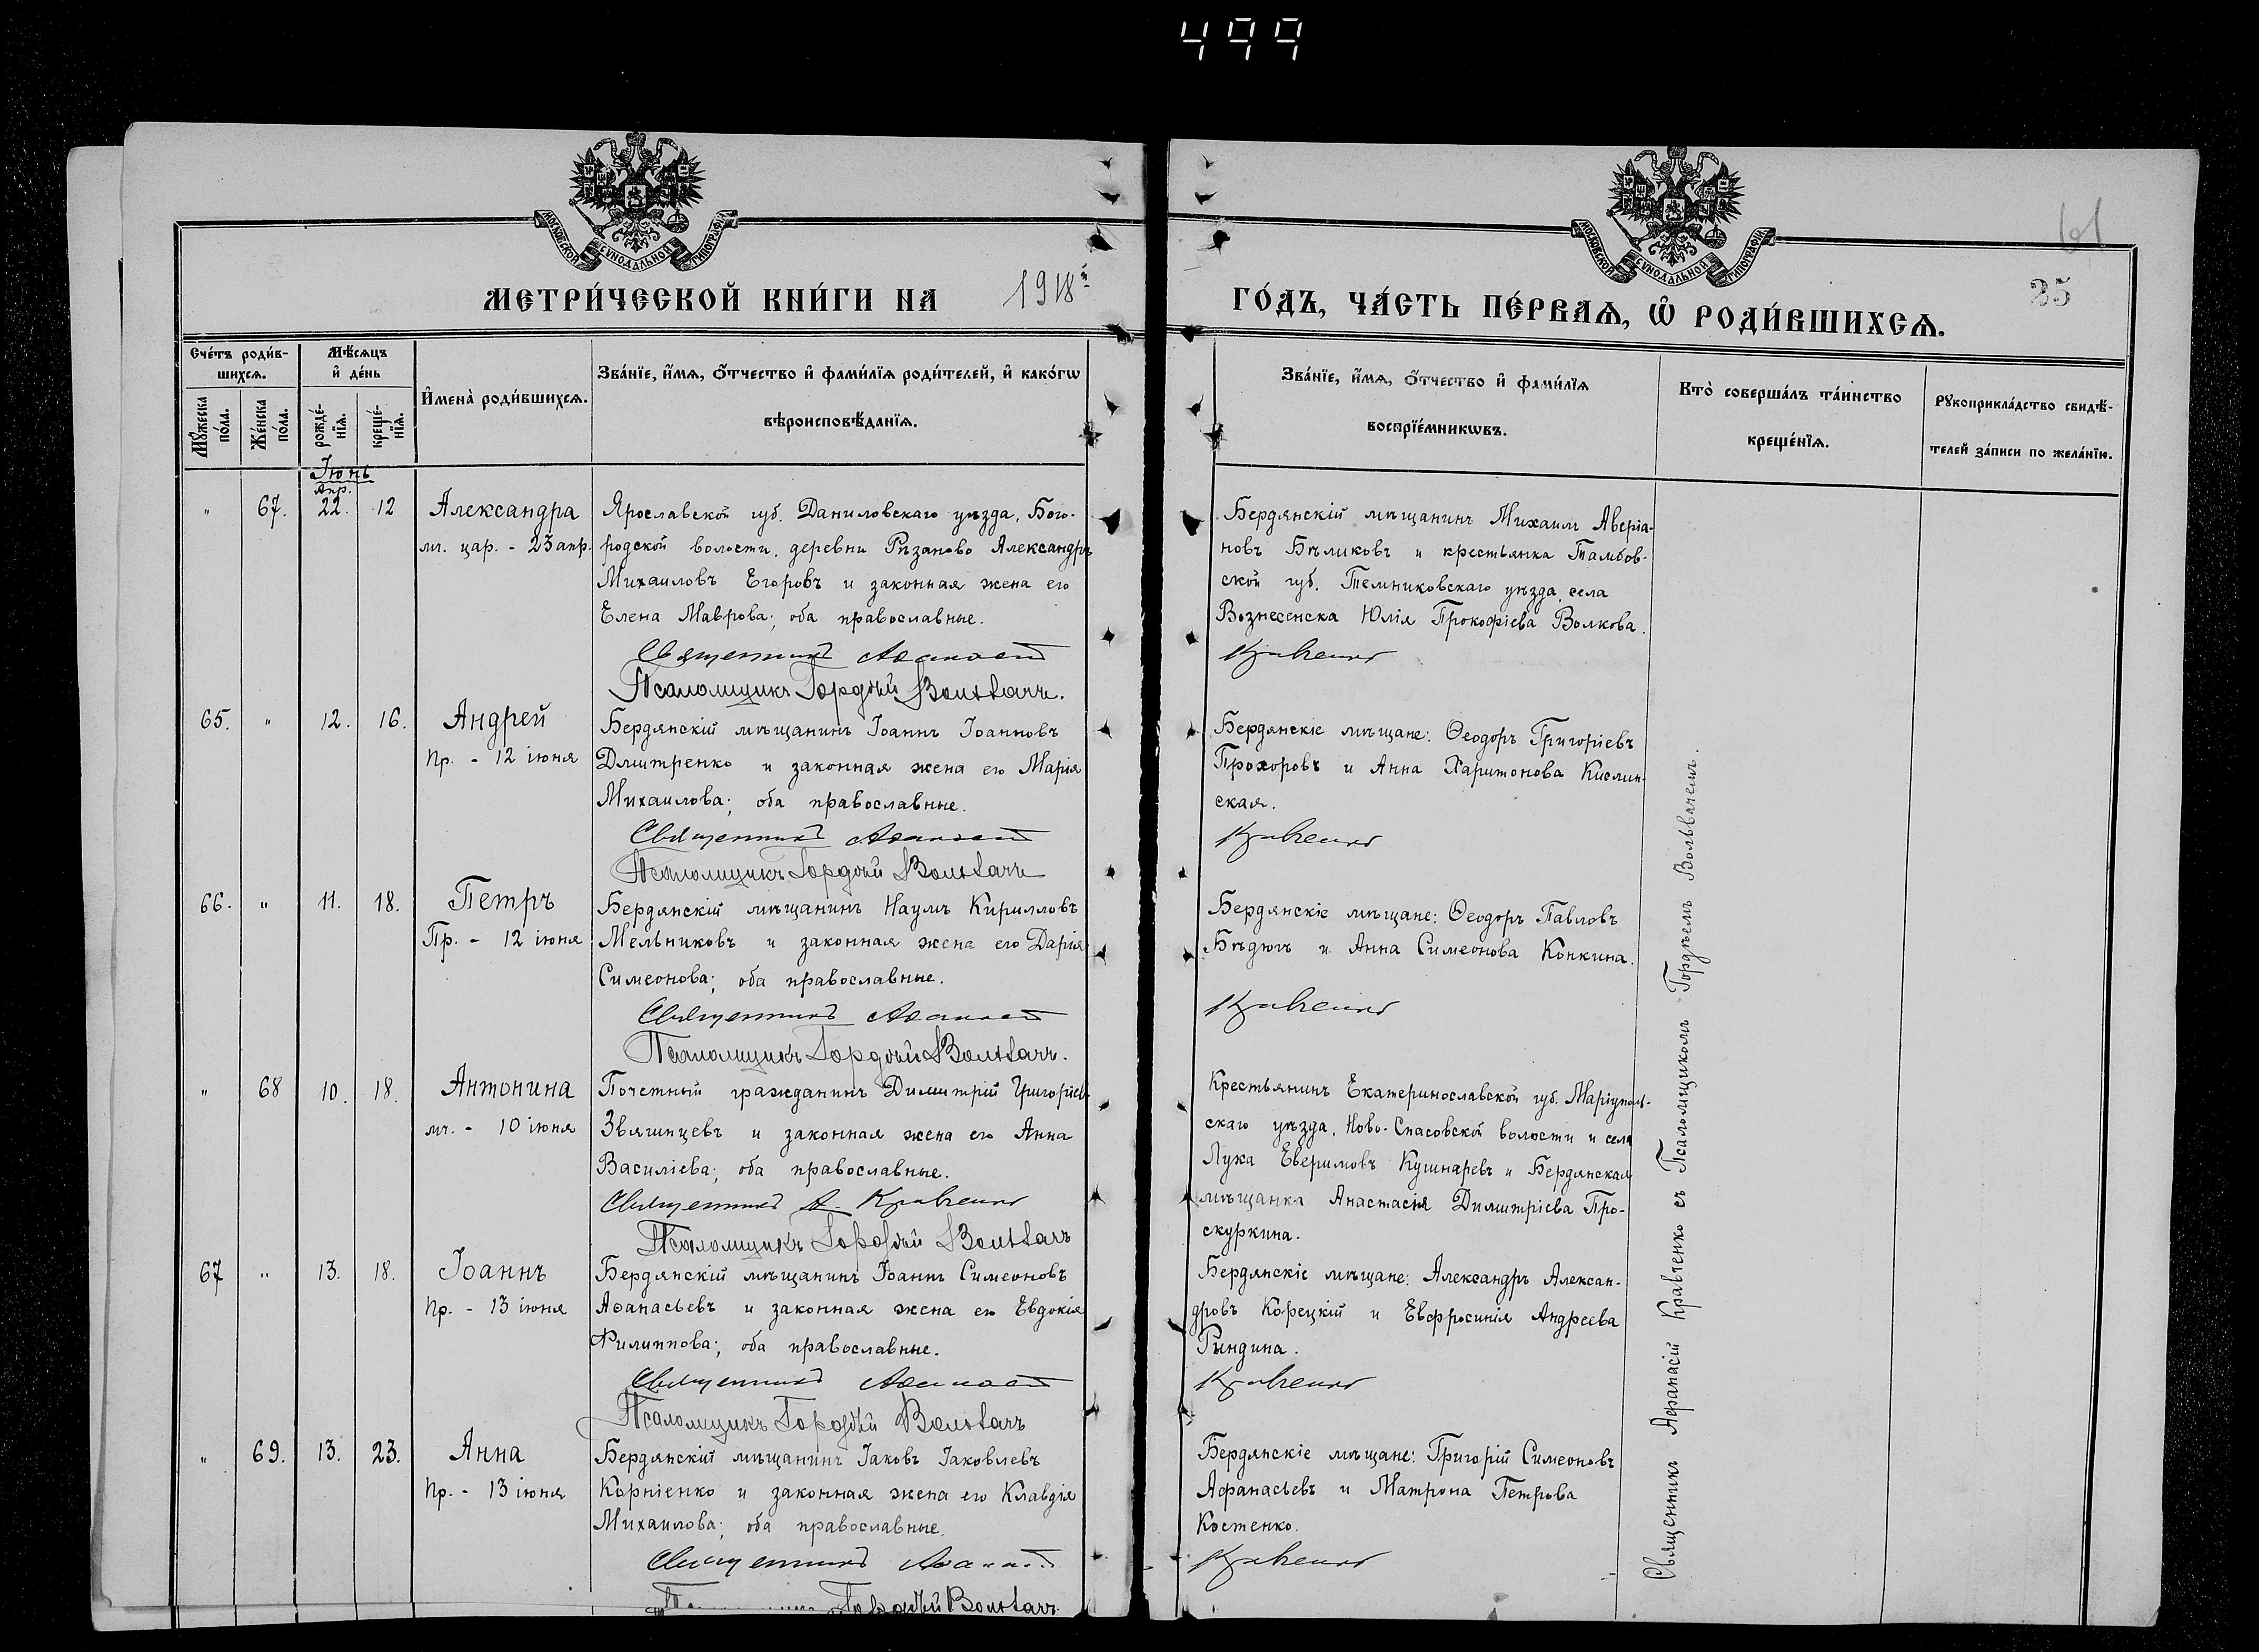 499
МОСКОВСКОЙ СУНОДАЛЬНОЙ ТИПОГРАФІИ
МОСКОВСКОЙ СУНОДАЛЬНОЙ ТИПОГРАФІИ
101
25
МЕТРИ́ЧЕСКОЙ КНИ́ГИ НА 1918й
ГО́ДЪ, ЧА́СТЬ ПЕ́РВАѦ, Ѡ҆ РОДИ́ВШИХСѦ.
Сче́тъ роди́в-
шихсѧ.
Мꙋ́жеска по́ла.
Же́нска по́ла.
Мѣ́сѧцъ
и҆ де́нь
рожде́-
нїѧ.
креще́-
нїѧ.
И҆мена̀ роди́вшихсѧ.
Зва́нїе, и҆́мѧ, ѻ҆́тчество и҆ фами́лїѧ роди́телей, и҆ како́гѡ
вѣроисповѣ́данїѧ.
Зва́нїе, и҆́мѧ, ѻ҆́тчество и҆ фами́лїѧ
воспрїе́мникѡвъ.
Кто̀ соверша́лъ та́инство
креще́нїѧ.
Рꙋкоприкла́дство свидѣ́-
телей за́писи по жела́нїю.
Іюнь
Апр.
" 67. 22. 12 Александра
мч. цар. - 23 апр.
Ярославской губ. Даниловскаго уѣзда, Бого-
родской волости, деревни Рѣзаново Александръ
Михаиловъ Егоровъ и законная жена его
Елена Маврова; оба православные.
Священникъ Аѳанасій
Псаломщикъ Гордѣй Вольвачъ.
Бердянскій мѣщанинъ Михаилъ Аверіа-
новъ Бѣликовъ и крестьянка Тамбов-
ской губ. Темниковскаго уѣзда, села
Вознесенска Юлія Прокофіева Волкова.
Кравченко
65. " 12. 16. Андрей
Пр. - 12 іюня
Бердянскій мѣщанинъ Іоаннъ Іоанновъ
Дмитренко и законная жена его Марія
Михаилова; оба православные.
Священникъ Аѳанасій
Псаломщикъ Гордѣй Вольвачъ
Бердянскіе мѣщане: Ѳеодоръ Григоріевъ
Прохоровъ и Анна Харитонова Кислин-
ская.
Кравченко
66. " 11. 18. Петръ
Пр. - 12 іюня
Бердянскій мѣщанинъ Наумъ Кирилловъ
Мельниковъ и законная жена его Дарія
Симеонова; оба православные.
Священникъ Аѳанасій
Псаломщикъ Гордѣй Вольвачъ.
Бердянскіе мѣщане: Ѳеодоръ Павловъ
Бѣдюгъ и Анна Симеонова Конкина.
Кравченко
" 68 10. 18. Антонина
мч. - 10 іюня
Почетный гражданинъ Димитрій Григоріевъ
Звягинцевъ и законная жена его Анна
Василіева; оба православные.
Священникъ А. Кравченко
Псаломщикъ Гордѣй Вольвачъ
Крестьянинъ Екатеринославской губ. Маріуполь-
скаго уѣзда, Ново-Спасовской волости и села
Лука Еверимовъ Кушнаревъ и Бердянская
мѣщанка Анастасія Димитріева Про-
скуркина.
67 " 13. 18. Іоаннъ
Пр. - 13 іюня
Бердянскій мѣщанинъ Іоаннъ Симеоновъ
Аѳанасьевъ и законная жена его Евдокія
Филиппова; оба православные.
Священникъ Аѳанасій
Псаломщикъ Гордѣй Вольвачъ
Бердянскіе мѣщане: Александръ Алексан-
дровъ Корецкій и Евфросинія Андреева
Рындина.
Кравченко
" 69. 13. 23. Анна
Пр. - 13 іюня
Бердянскій мѣщанинъ Іаковъ Іаковлевъ
Корніенко и законная жена его Клавдія
Михаилова; оба православные.
Священникъ Аѳанасій
Гордѣй Вольвачъ
Бердянскіе мѣщане: Григорій Симеоновъ
Афанасьевъ и Матрона Петрова
Костенко.
Кравченко
Священникъ Афанасій Кравченко съ Псаломщикомъ Гордѣемъ Вольвачемъ.